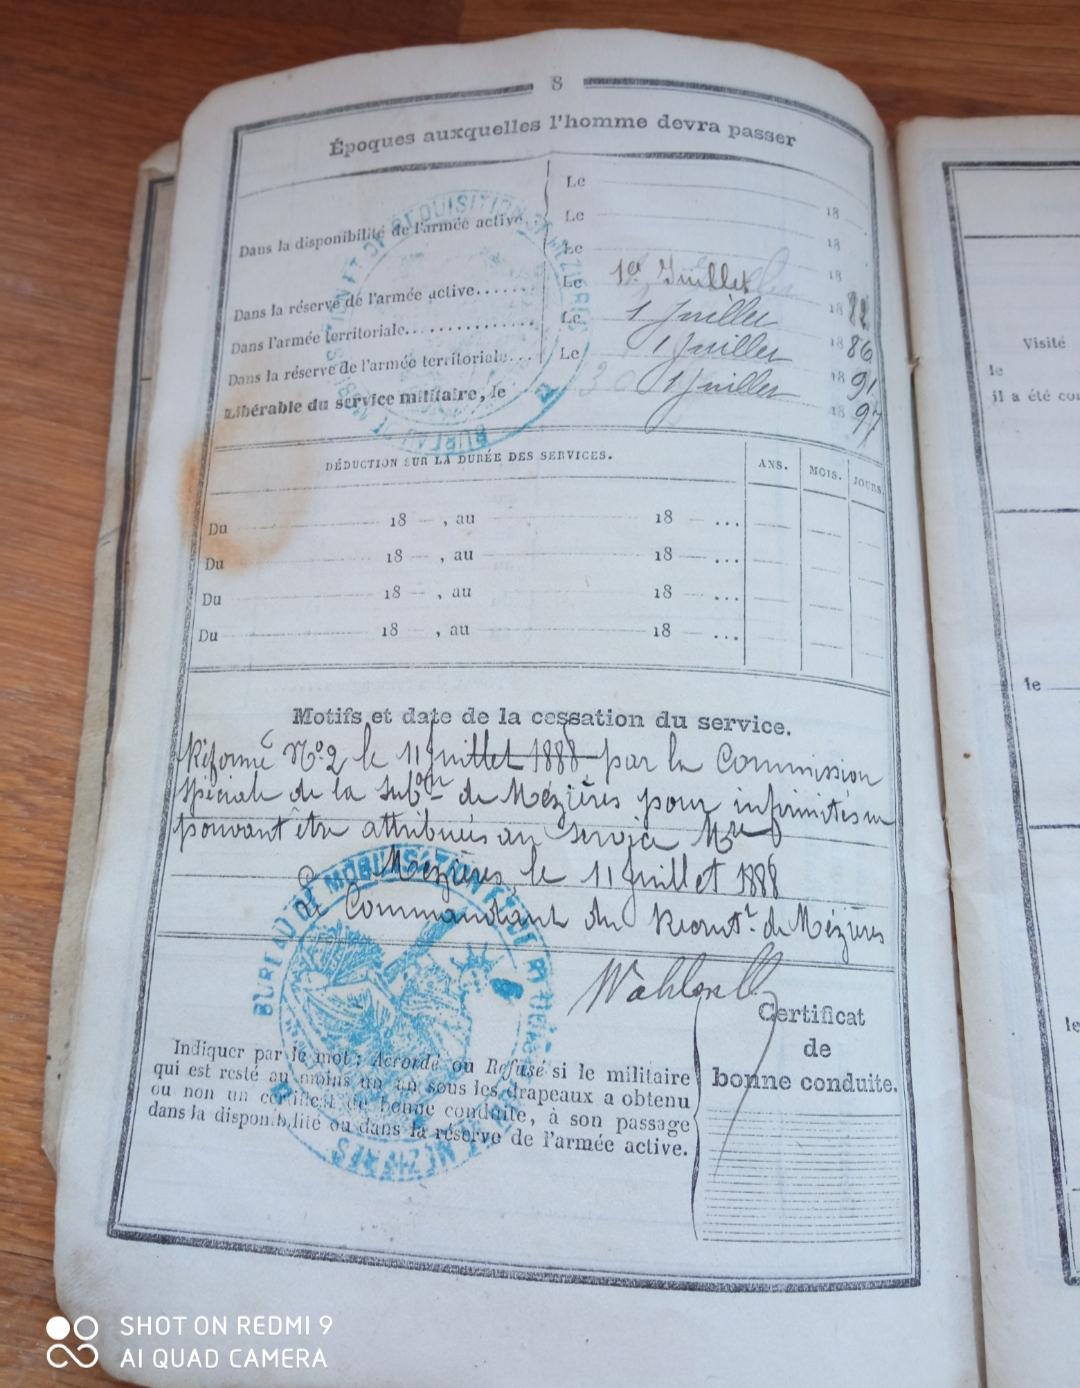 8
Époques auxquelles l'homme devra passer
Dans la disponibilité de l'armée active.
Le 18
Le 18
Le 18
Dans la réserve de l'armée active...... Le 1er Juillet 1882
Dans l'armée territoriale............ Le 1 Juillet 1886
Dans la réserve de l'armée territoriale... Le 1 Juillet 1891
Libérable du service militaire, le 1 Juillet 1897
DÉDUCTION SUR LA DURÉE DES SERVICES. ANS. MOIS. JOURS
Du 18 , au 18 ...
Du 18 , au 18 ...
Du 18 , au 18 ...
Du 18 , au 18 ...
Motifs et date de la cessation du service.
Réformé No 2 le 11 Juillet 1888 par la Commission
spéciale de la Subon de Mézières pour infirmités ne
pouvant être attribuées au service Mre
Mézières, le 11 Juillet 1888
Le Commandant du Recrutt. de Mézières
BUREAU DE MOBILISATION ET DE RÉQUISITION DE MÉZIÈRES
Indiquer par le mot : Accordé ou Refusé si le militaire
qui est resté au moins un an sous les drapeaux a obtenu
ou non un certificat de bonne conduite, à son passage
dans la disponibilité ou dans la réserve de l'armée active.
Certificat
de
bonne conduite.
Visité
le
il a été
le
le
SHOT ON REDMI 9
AI QUAD CAMERA